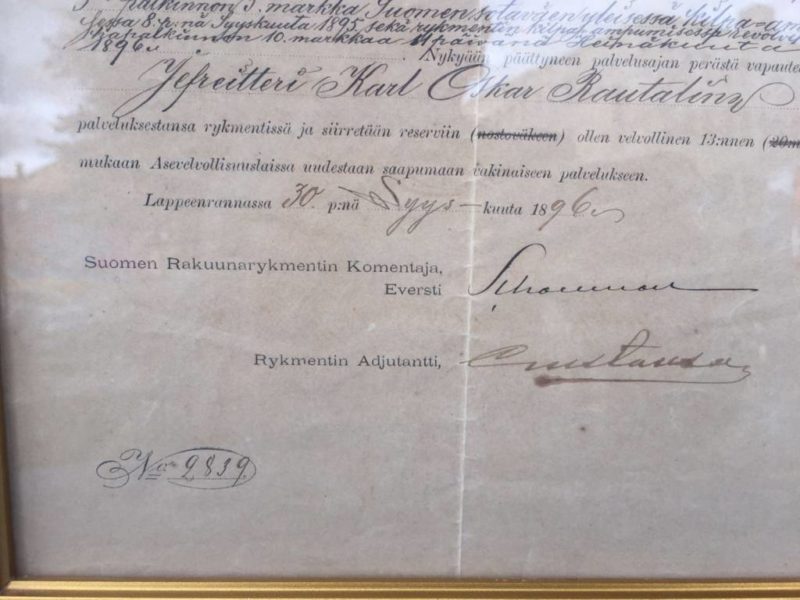 palkinnon 5. markka Suomen sotaväen yleisessä kilpa-am
ssa 8. p:nä Syyskuuta 1895, sekä rykmentin kilpa ampumisessa revolveri
palkinnon 10. markkaa päivänä Heinäkuuta
1896.
Nykyään päättyneen palvelusajan perästä vapaute
Jefreitteri Karl Oskar Rautalin
palveluksestansa rykmentissä ja siirretään reserviin (nostoväkeen) ollen velvollinen 13:nnen (20m
mukaan Asevelvollisuuslaissa uudestaan saapumaan vakinaiseen palvelukseen.
Lappeenrannassa 30 p:nä Syys-kuuta 1896
Suomen Rakuunarykmentin Komentaja,
Eversti Schauman
Rykmentin Adjutantti,
No 2839